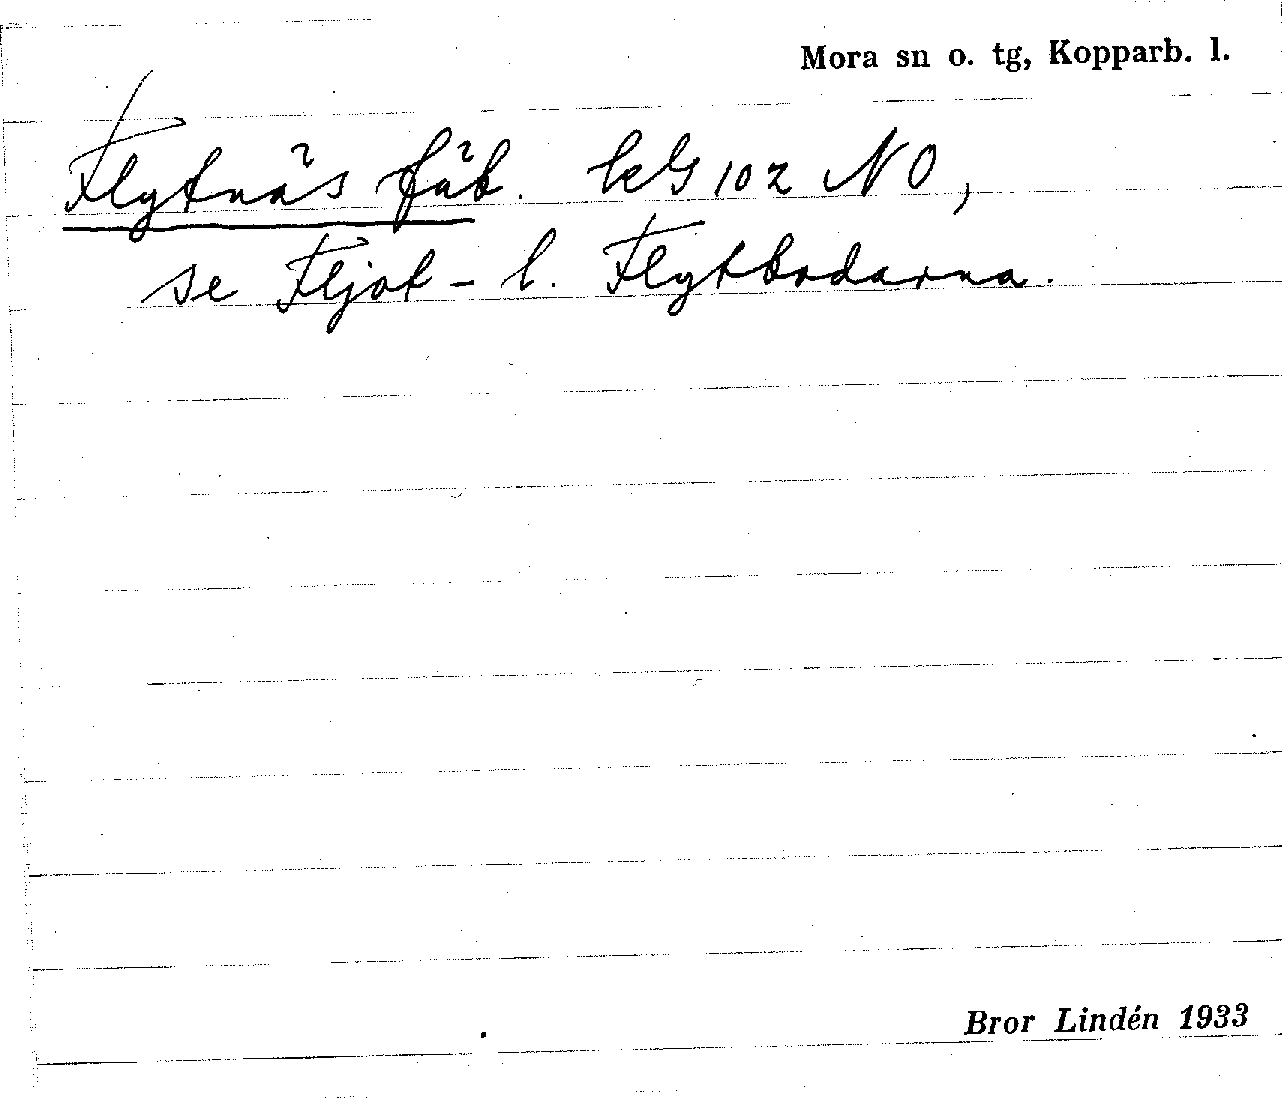 Mora sn o. tg, Kopparb. l.
Flytnäs fäb. kbl 102 NO,
se Fljot- l. Flytbodarna.
Bror Lindén 1933